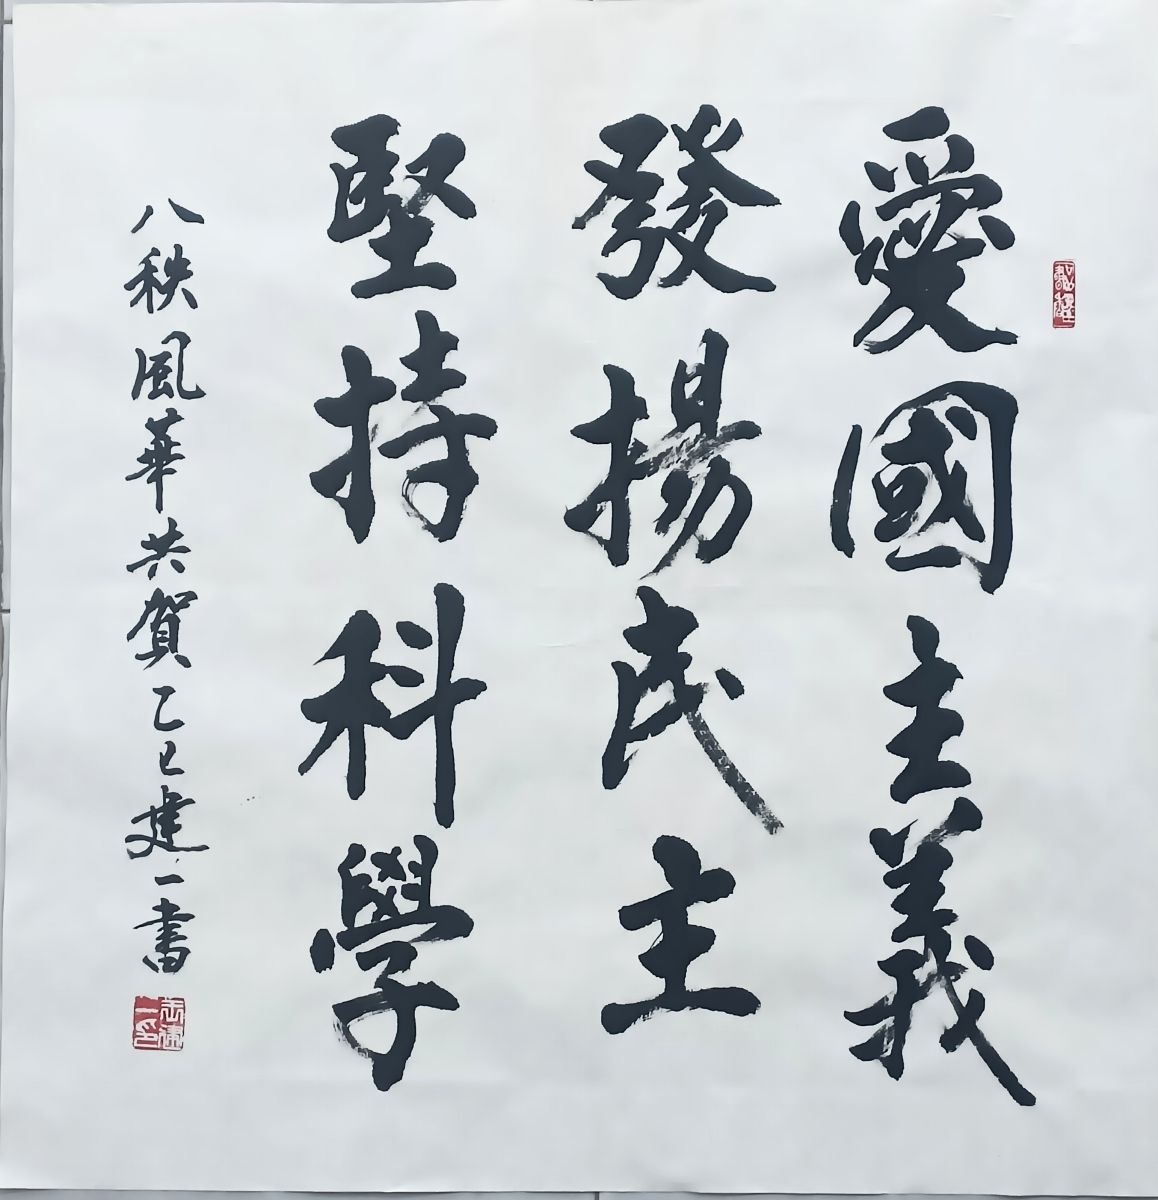 愛國主義
發揚民主
堅持科學
八秩風華共賀乙巳建一書